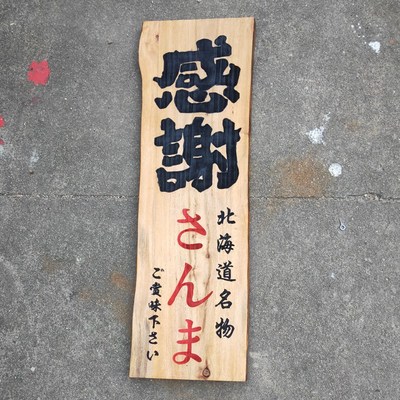 感謝
北海道名物
さんま
ご賞味下さい